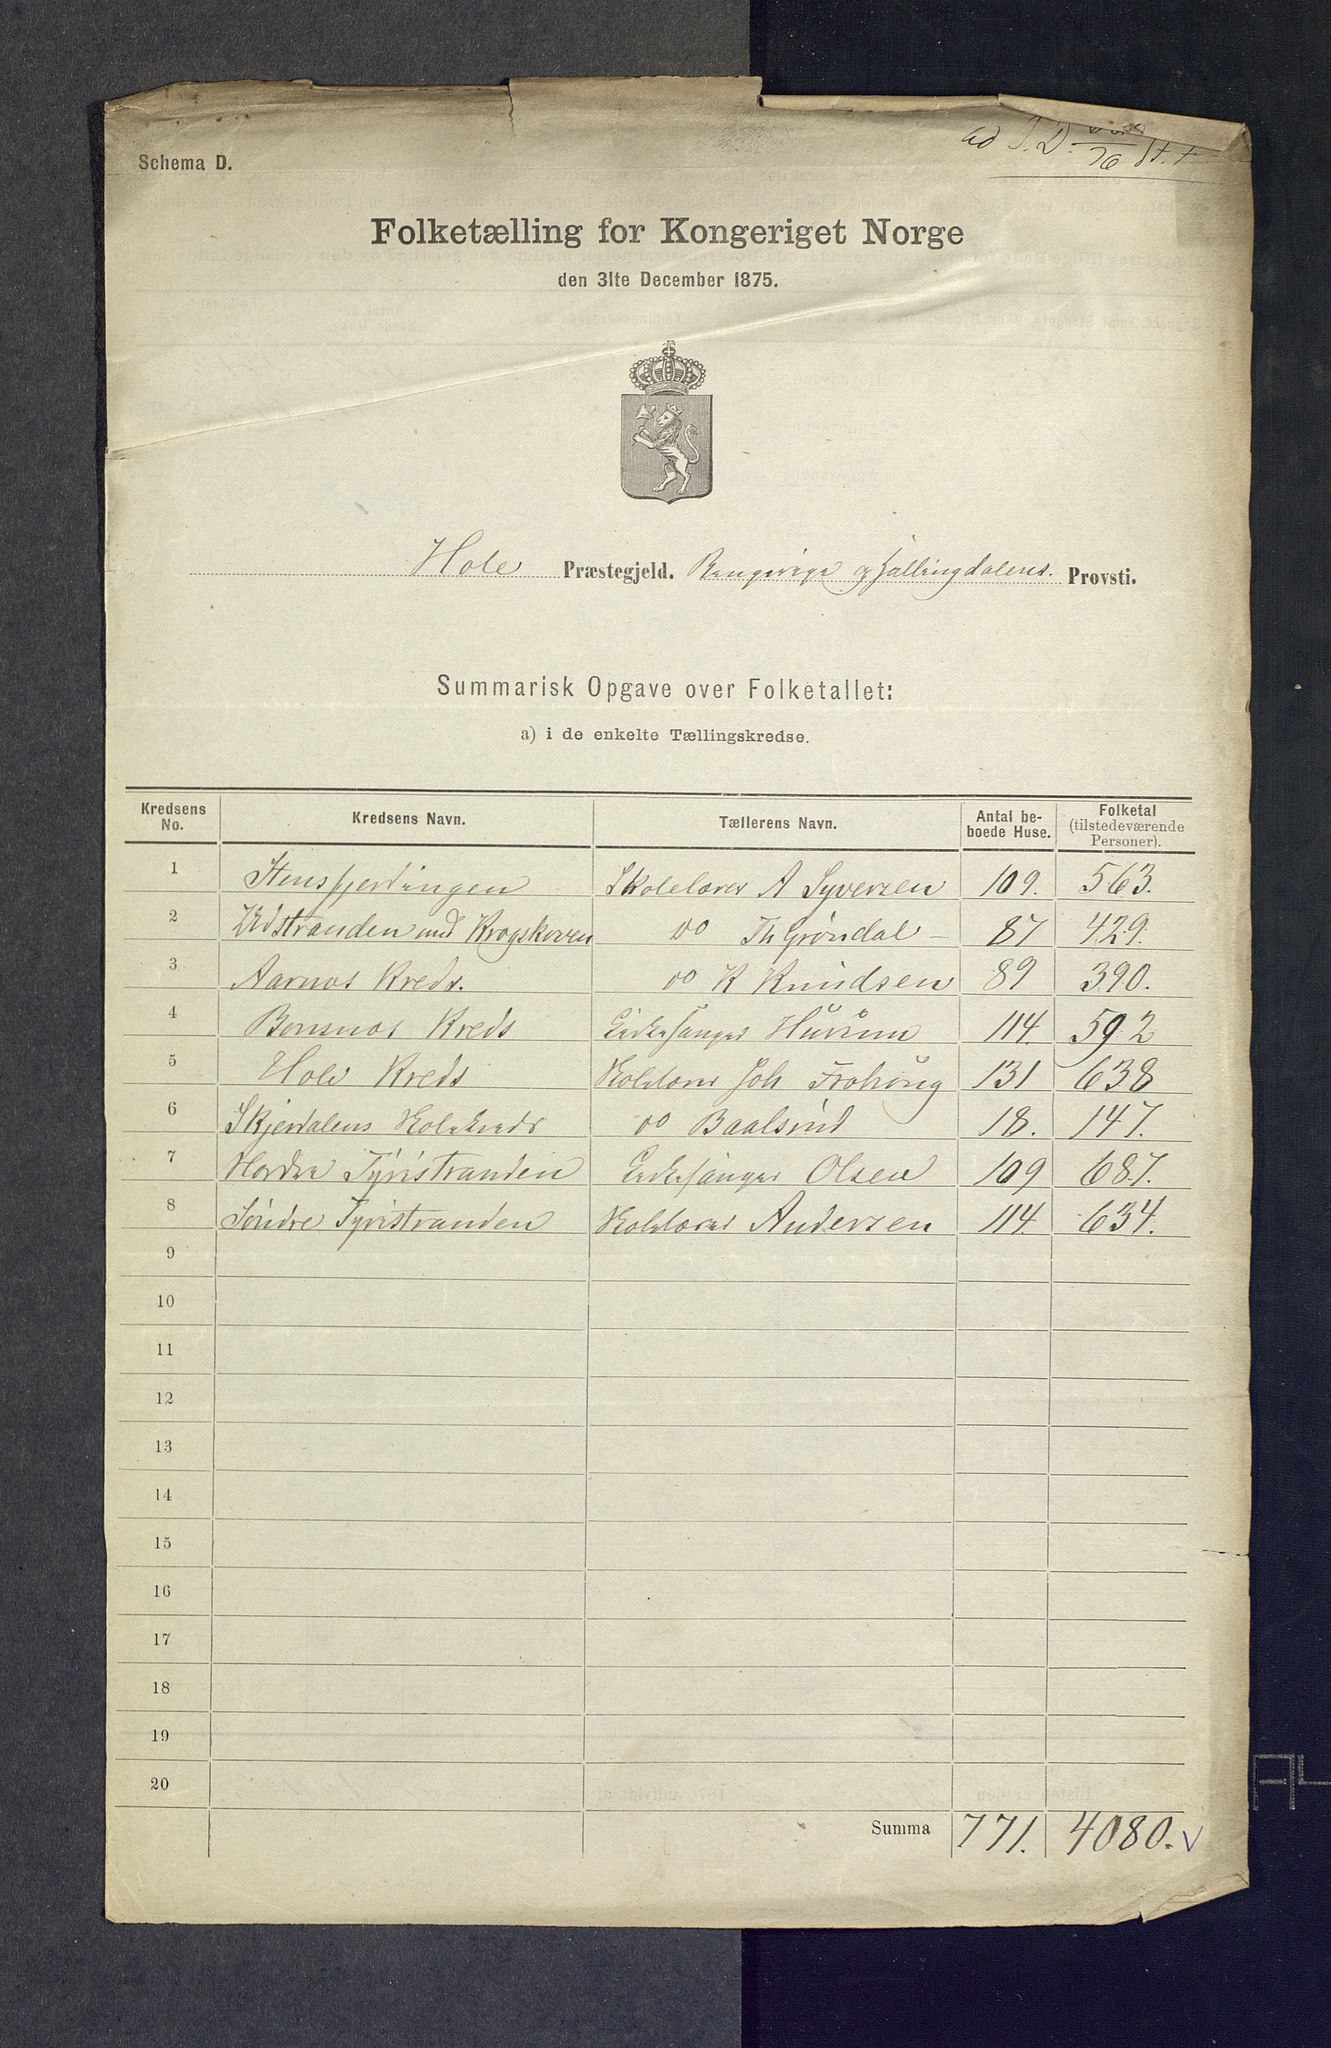 ad J. D. 76 St. t
Schema D.
Folketælling for Kongeriget Norge
den 31te December 1875.
Hole Præstegjeld. Ringerige og Hallingdalens. Provsti.
Summarisk Opgave over Folketallet:
a) i de enkelte Tællingskredse.
Kredsens No. Kredsens Navn. Tællerens Navn. Antal beboede Huse. Folketal (tilstedeværende Personer).
1 Stensfjerdingen Skolelærer A Syversen 109. 563.
2 Utstranden med Krogskoven do Th Grøndal 87 429.
3 Aarnæs Kreds. do K Knudsen 89 390.
4 Bønsnæs Kreds Kirkesanger Hurum 114. 592
5 Hole Kreds Skolelærer Joh Frøhoug 131 638
6 Skjerdalens Skolekreds do Baalsrud 18. 147.
7 Nordre Tyristranden Kirkesanger Olsen 109 687.
8 Søndre Tyristranden Skolelærer Andersen 114. 634.
9
10
11
12
13
14
15
16
17
18
19
20
Summa 771. 4080.